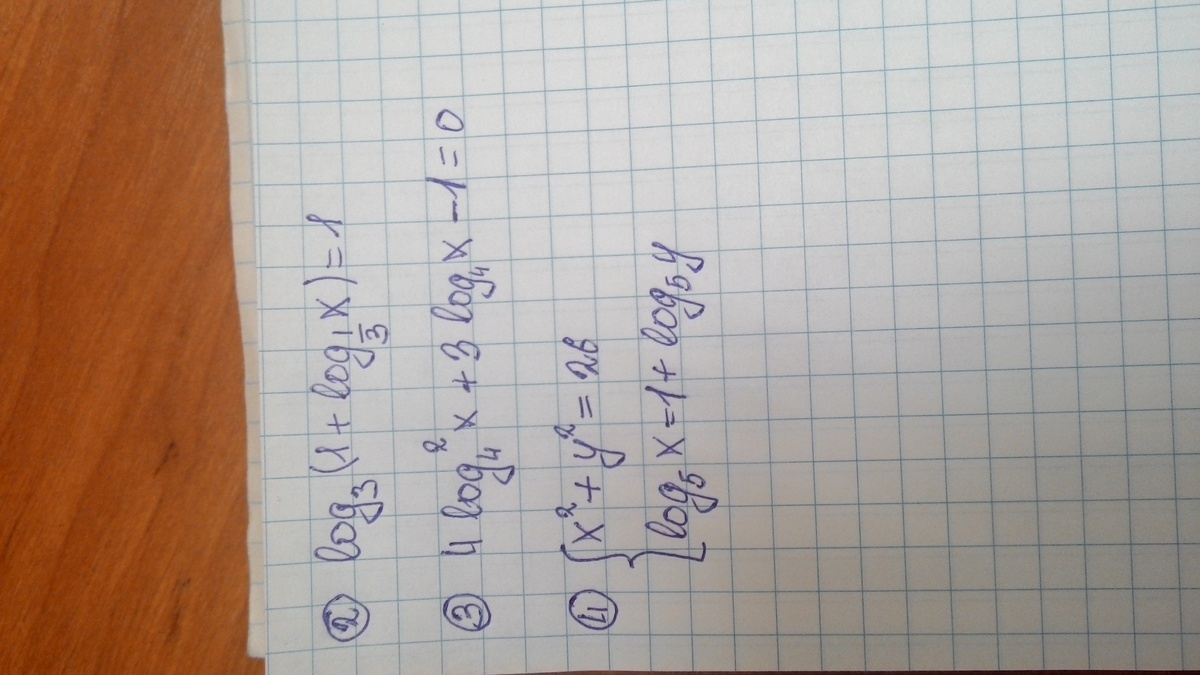 ② log₃(1+log_{1/3}x)=1
③ 4 log₄²x+3 log₄x-1=0
④ { x²+y²=26
log₅x=1+log₅y